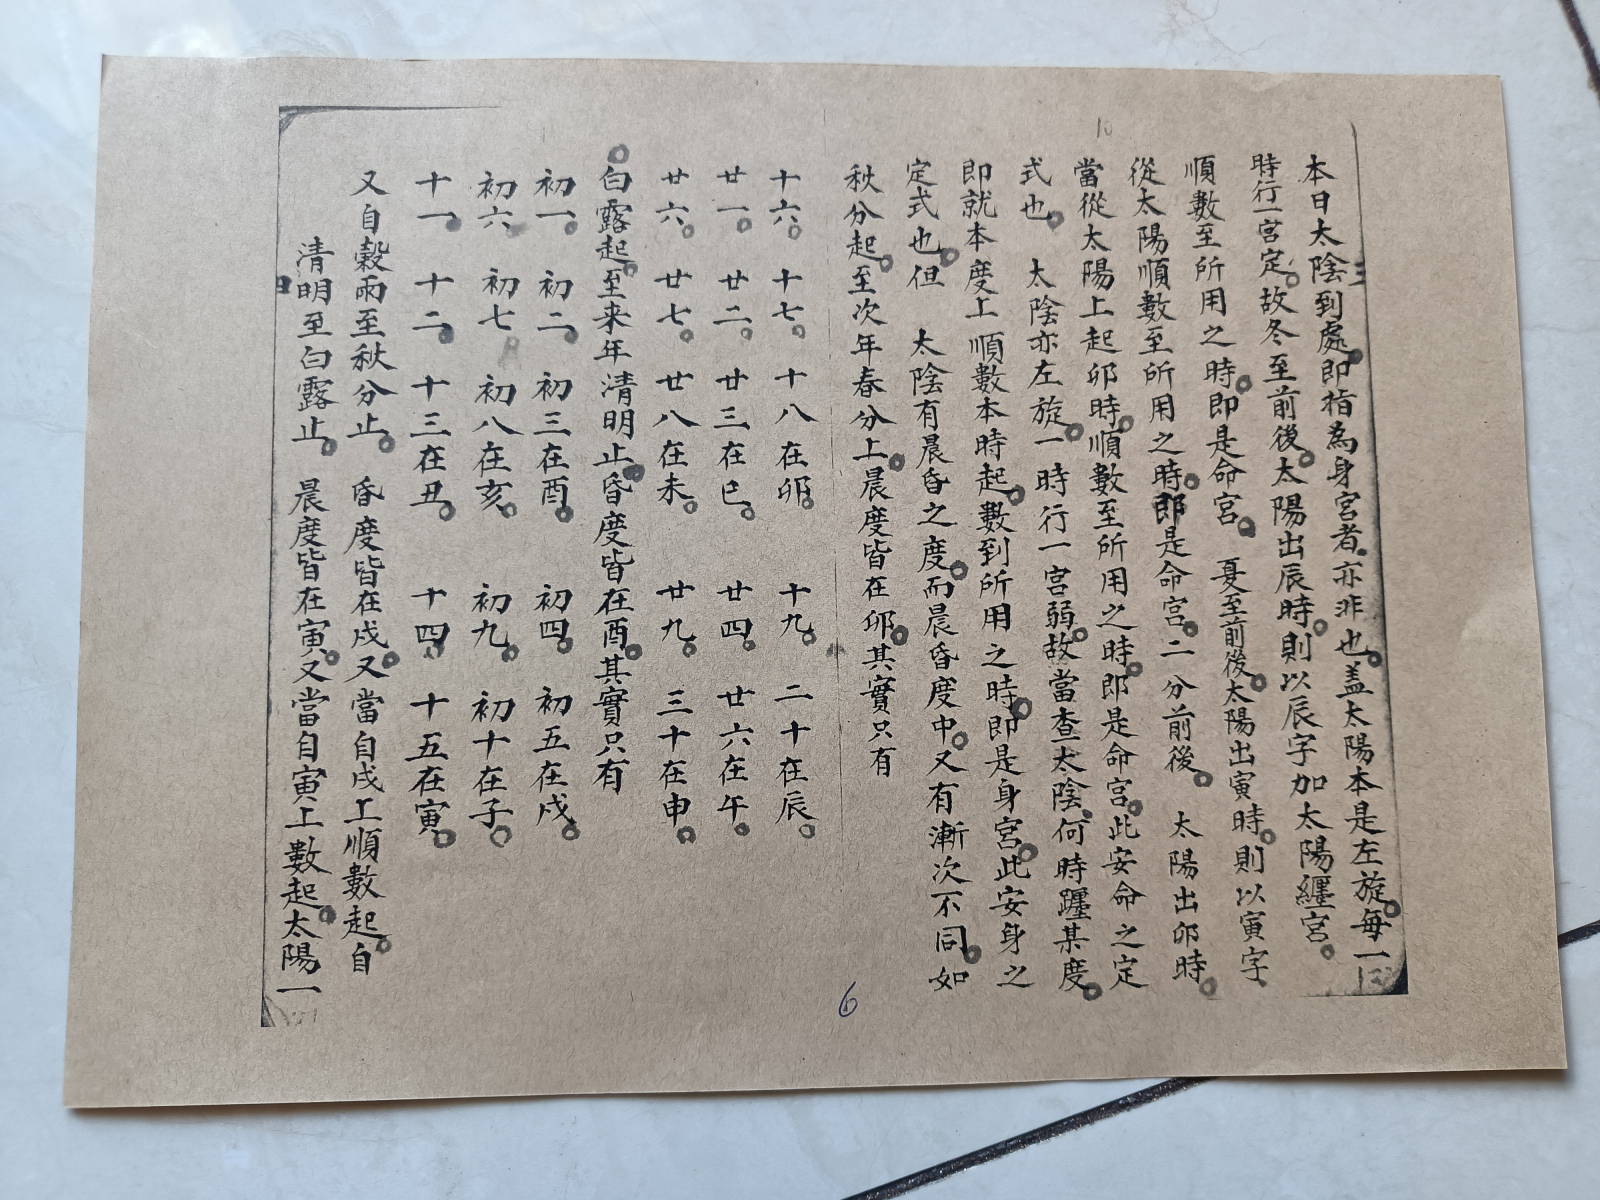 本日太陰到處。即指為身宮者。亦非也。盖太陽本是左旋。每一
時行一宮定。故冬至前後。太陽出辰時。則以辰字加太陽纒宮。
順數至所用之時。即是命宮。夏至前後。太陽出寅時。則以寅字
從太陽順數至所用之時。即是命宮。二分前後。太陽出卯時。
當從太陽上起卯時。順數至所用之時。即是命宮。此安命之定
式也。太陰亦左旋。一時行一宮弱。故當查太陰。何時躔某度。
即就本度上順數本時起。數到所用之時。即是身宮。此安身之
定式也。但太陰有晨昏之度。而晨昏度中。又有漸次不同。如
秋分起。至次年春分上。晨度皆在卯。其實只有
十六。十七。十八在卯。十九。二十在辰。
廿一。廿二。廿三在巳。廿四。廿六在午。
廿六。廿七。廿八在未。廿九。三十在申。
白露起。至来年清明止。昏度皆在酉。其實只有
初一。初二。初三在酉。初四。初五在戍。
初六。初七。初八在亥。初九。初十在子。
十一。十二。十三在丑。十四。十五在寅。
又自穀雨至秋分止。昏度皆在戍。又當自戍上順數起。自
清明至白露止。晨度皆在寅。又當自寅上數起。太陽一
10
6